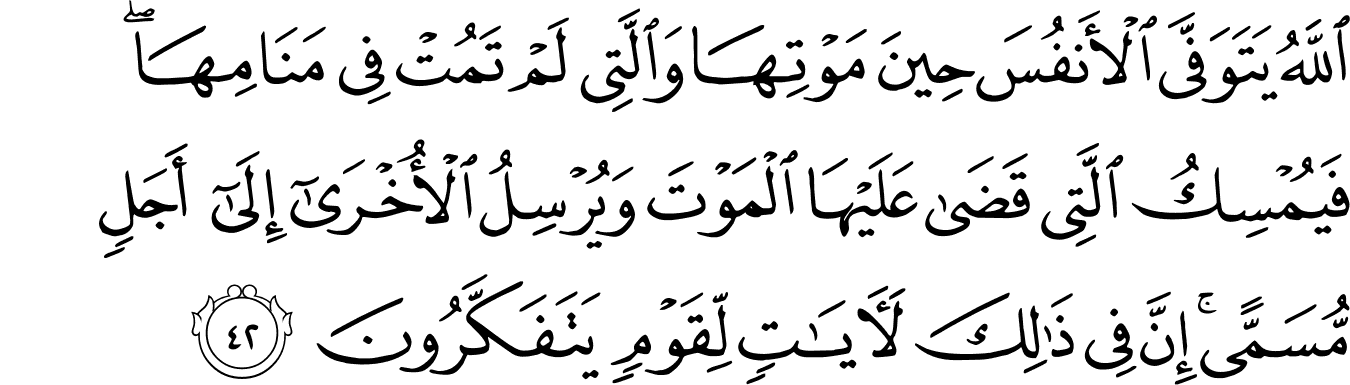 ٱللَّهُ يَتَوَفَّى ٱلْأَنفُسَ حِينَ مَوْتِهَا وَٱلَّتِى لَمْ تَمُتْ فِى مَنَامِهَا ۖ
فَيُمْسِكُ ٱلَّتِى قَضَىٰ عَلَيْهَا ٱلْمَوْتَ وَيُرْسِلُ ٱلْأُخْرَىٰٓ إِلَىٰٓ أَجَلٍ
مُّسَمًّى ۚ إِنَّ فِى ذَٰلِكَ لَـَٔايَـٰتٍ لِّقَوْمٍ يَتَفَكَّرُونَ ٤٢